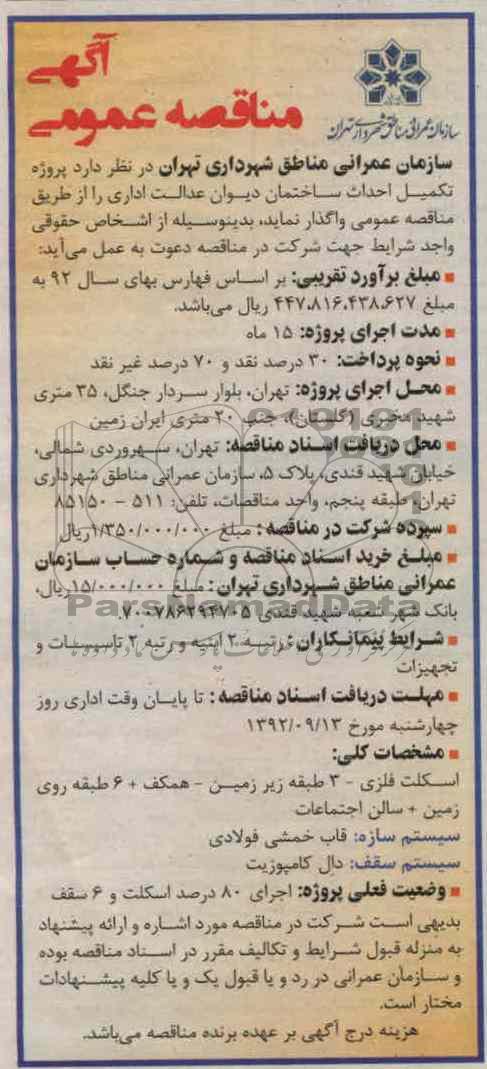 آگهی
مناقصه عمومی
سازمان عمرانی مناطق شهرداری تهران
سازمان عمرانی مناطق شهرداری تهران در نظر دارد پروژه
تکمیل احداث ساختمان دیوان عدالت اداری را از طریق
مناقصه عمومی واگذار نماید، بدینوسیله از اشخاص حقوقی
واجد شرایط جهت شرکت در مناقصه دعوت به عمل می‌آید:
▪ مبلغ برآورد تقریبی: بر اساس فهارس بهای سال ۹۲ به
مبلغ ۴۴۷،۸۱۶،۴۳۸،۶۲۷ ریال می‌باشد.
▪ مدت اجرای پروژه: ۱۵ ماه
▪ نحوه پرداخت: ۳۰ درصد نقد و ۷۰ درصد غیر نقد
▪ محل اجرای پروژه: تهران، بلوار سردار جنگل، ۳۵ متری
شهید مخبری (گلستان)، جنب ۲۰ متری ایران زمین
▪ محل دریافت اسناد مناقصه: تهران، سهروردی شمالی،
خیابان شهید قندی، پلاک ۵، سازمان عمرانی مناطق شهرداری
تهران، طبقه پنجم، واحد مناقصات، تلفن: ۵۱۱ - ۸۵۱۵۰
▪ سپرده شرکت در مناقصه: مبلغ ۱/۳۵۰/۰۰۰/۰۰۰ ریال
▪ مبلغ خرید اسناد مناقصه و شماره حساب سازمان
عمرانی مناطق شهرداری تهران: مبلغ ۱۵/۰۰۰/۰۰۰ ریال،
بانک شهر شعبه شهید قندی
ParsNamadData
▪ شرایط پیمانکاران: رتبه ۲ ابنیه و رتبه ۲ تاسیسات و
تجهیزات
▪ مهلت دریافت اسناد مناقصه: تا پایان وقت اداری روز
چهارشنبه مورخ ۱۳۹۲/۰۹/۱۳
▪ مشخصات کلی:
اسکلت فلزی - ۳ طبقه زیر زمین - همکف + ۶ طبقه روی
زمین + سالن اجتماعات
سیستم سازه: قاب خمشی فولادی
سیستم سقف: دال کامپوزیت
▪ وضعیت فعلی پروژه: اجرای ۸۰ درصد اسکلت و ۶ سقف
بدیهی است شرکت در مناقصه مورد اشاره و ارائه پیشنهاد
به منزله قبول شرایط و تکالیف مقرر در اسناد مناقصه بوده
و سازمان عمرانی در رد و یا قبول یک و یا کلیه پیشنهادات
مختار است.
هزینه درج آگهی بر عهده برنده مناقصه می‌باشد.